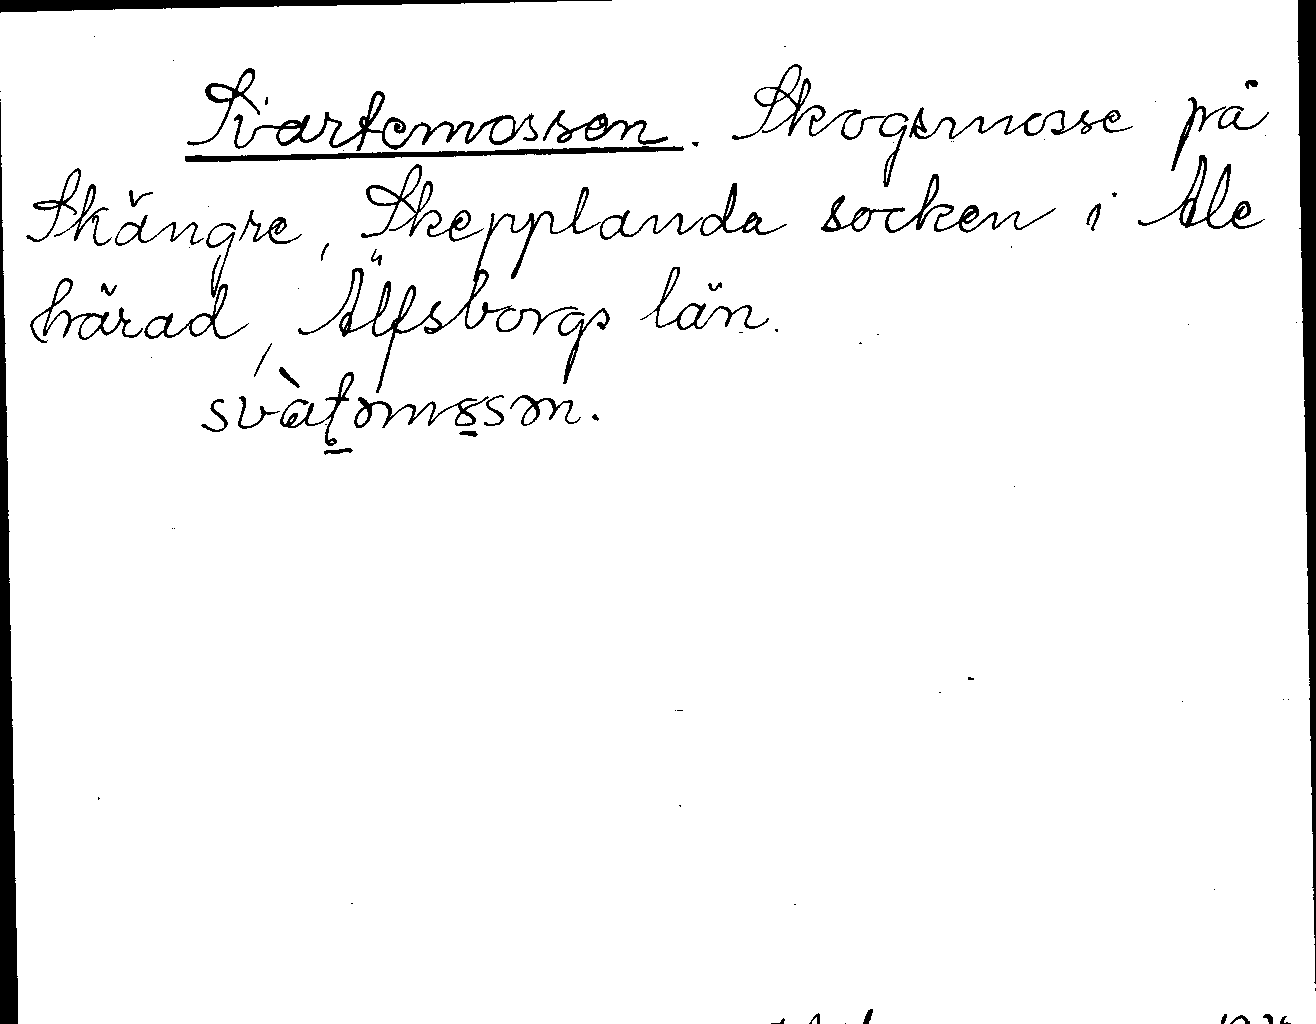 Svartemossen. Skogsmosse på
Skängre, Skepplanda socken i Ale
härad, Älfsborgs län.